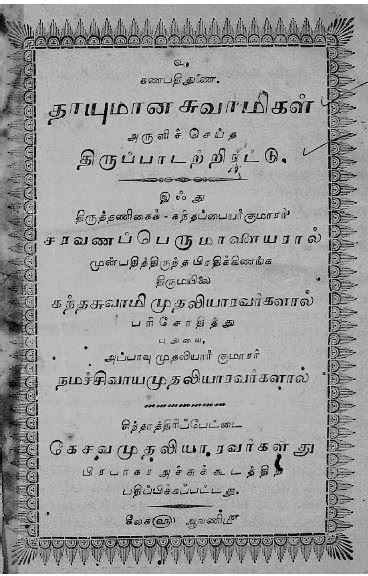 உ,
கணபதிதுணை.
தாயுமான சுவாமிகள்
அருளிச் செய்த
திருப்பாடற்றிரட்டு.
இஃது
திருத்தணிகைக் - கந்தப்பையர்குமாரர்
சரவணப்பெருமாளையரால்
முன்பதித்திருந்த பிரதிக்கிணங்க
திருமயிலை
கந்தசுவாமி முதலியாரவர்களால்
பரிசோதித்து
புதுவை,
அப்பாவு முதலியார் குமாரர்
நமச்சிவாயமுதலியாரவர்களால்
சிந்தாத்திரிப்பேட்டை
கேசவமுதலியாரவர்களது
பிரபாகர அச்சுக்கூடத்திற்
பதிப்பிக்கப்பட்டது.
கீலகளு ஆவணிமீ